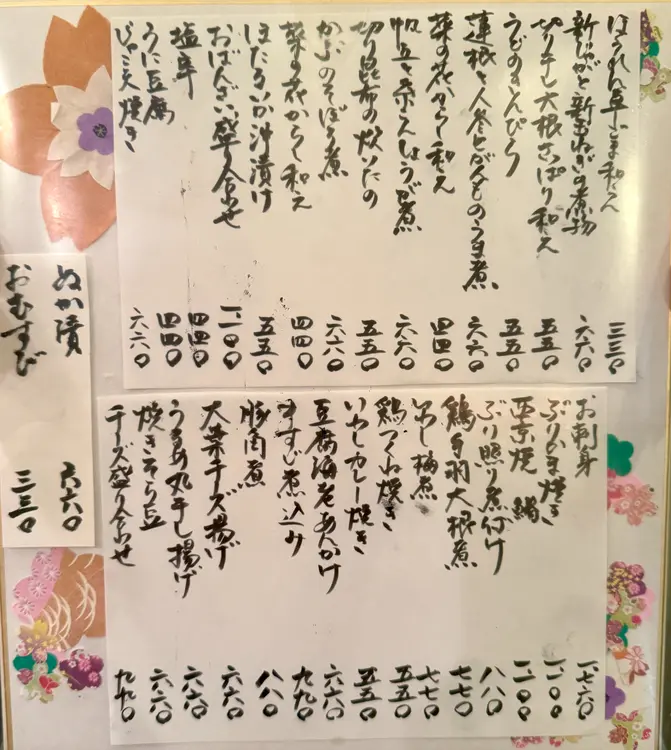 ほうれん草ごま和え 三三〇
新じゃがと新玉ねぎの煮物 六六〇
切り干し大根さっぱり和え 五五〇
うどのきんぴら 五五〇
蓮根と人参とがんものうま煮 六六〇
菜の花からし和え 四四〇
帆立と糸こんしょうが煮 六六〇
切り昆布の炊いたの 五五〇
かぶのそぼろ煮 六六〇
菜の花からし和え 四四〇
ほたるいか沖漬け 五五〇
おばんざい盛り合わせ 一一〇〇
塩辛 四四〇
うに豆腐 四四〇
じゃこ天焼き 六六〇
ぬか漬 六六〇
おむすび 三三〇
お刺身 一七六〇
ぶりかま焼き 一一〇〇
西京焼 一一〇〇
ぶり照り煮付け 八八〇
鶏手羽大根煮 七七〇
いわし梅煮 七七〇
鶏つくね焼き 五五〇
いわしカレー焼き 五五〇
豆腐海老あんかけ 六六〇
牛すじ煮込み 九九〇
豚角煮 八八〇
大葉チーズ揚げ 六六〇
うるめ丸干し揚げ 六六〇
焼きそら豆 六六〇
チーズ盛り合わせ 九九〇